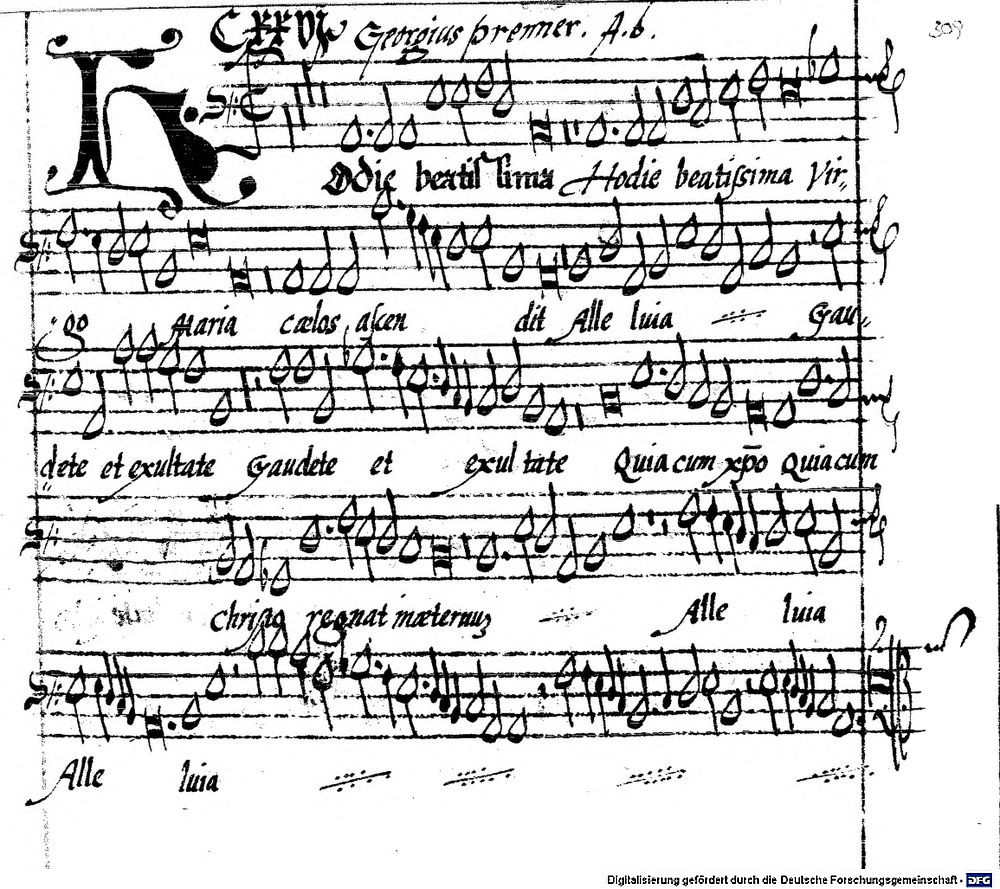 CXXVI Georgius prenner. A.6. 309
Hodie beatissima Hodie beatissima Vir„
„go Maria cælos ascen dit Alle luia Gau„
dete et exultate Gaudete et exultate Quia cum xp̄o Quia cum
christo regnat in æternuʒ Alle luia
Alle luia
Digitalisierung gefördert durch die Deutsche Forschungsgemeinschaft - DFG